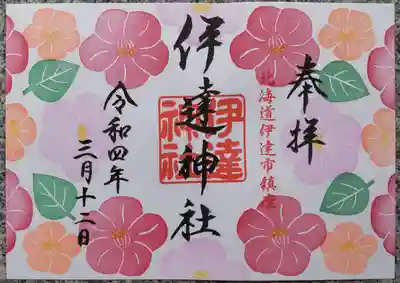 奉拝
北海道伊達市鎮座
伊達神社
伊達神社
令和四年
三月十二日